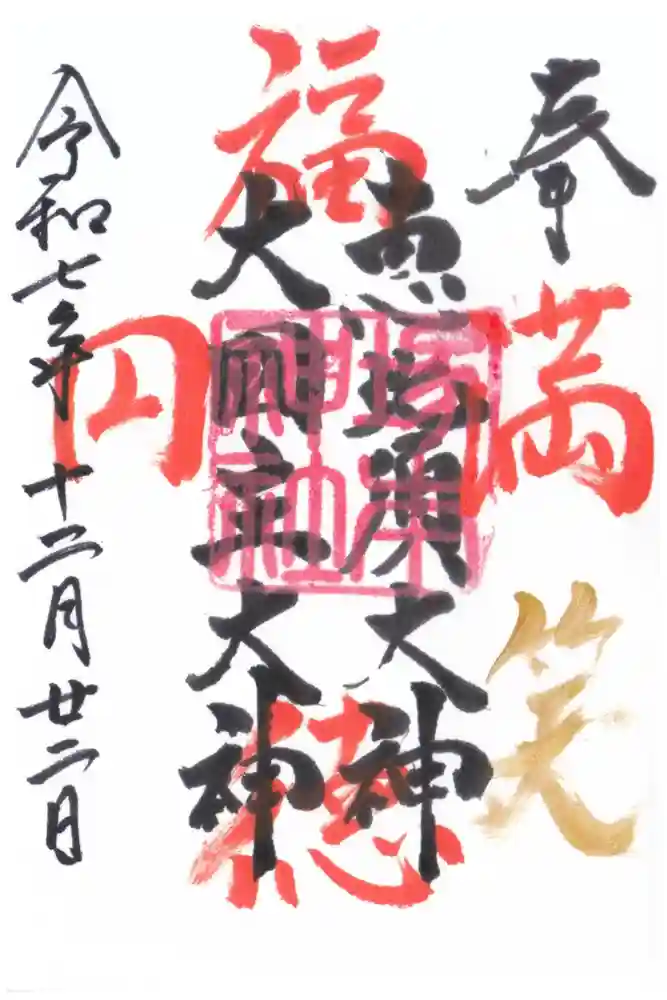 奉
満
笑
福
徳
恵比須大神
大国主大神
円
令和七年十二月廿二日